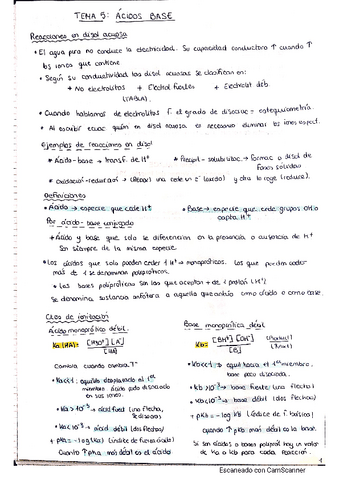 TEMA 5: ÁCIDOS BASE
Reacciones en disol acuosa
• El agua pura no conduce la electricidad. Su capacidad conductora ↑ cuando ↑
los iones que contiene
• Según su conductividad las disol acuosas se clasifican en:
+ No electrolitos + Electrol fuertes + Electrolit déb
• Cuando hablamos de electrolitos f. el grado de disociac = estequiometría.
• Al escribir ecuac quím en disol acuosa es necesario eliminar los iones espect.
Ejemplos de reacciones en disol
• Ácido-base → transf. de H⁺ • Precipit-solubilizac → Formac o disol de
fases sólidas
• oxidación-reducción → y otra lo coge (reduce).
Definiciones
• Ácido → especie que cede H⁺ • Base → especie que cede grupos OH⁻ o
capta H⁺
Par ácido-base conjugado
• Ácido y base que solo se diferencian en la presencia o ausencia de H⁺
Son siempre de la misma especie.
• Los ácidos que solo pueden ceder 1 H⁺ → monopróticos. Los que pueden ceder
más de 1 se denomina polipróticos.
• Las bases polipróticas son las que aceptan + de 1 protón (H⁺)
Se denomina sustancia anfótera a aquella que actúa como ácido o como base.
Ctes de ionización
Ácido monoprótico débil.
Ka (HA) = [H₃O⁺] [A⁻] / [HA]
Cambia cuando cambia T°
• Ka<<1: equilib desplazado al 1er
miembro. Ácido poco disociado
en sus iones.
• Ka > 10⁻³ → ácid fuerte (una flecha,
se disocia)
• Ka < 10⁻³ → ácid débil (dos flechas)
+ pKa = -log(Ka) (índice de fuerza ácida)
Cuanto ↑ pKa más débil es el ácido
Base monoprótica débil
Kb = [BH⁺] [OH⁻] / [B]
• Kb<<1 → equil hacia el 1er miembro.
base poco disociada.
• Kb > 10⁻³ → base fuerte (una flecha)
• Kb < 10⁻³ → base débil (dos flechas)
+ pKb = -log Kb (índice de f. básica)
cuando ↑ pKb más débil es la base.
Si son ácidos o bases polipról hay un valor
de Ka o Kb para cada reacción.
1
Escaneado con CamScanner